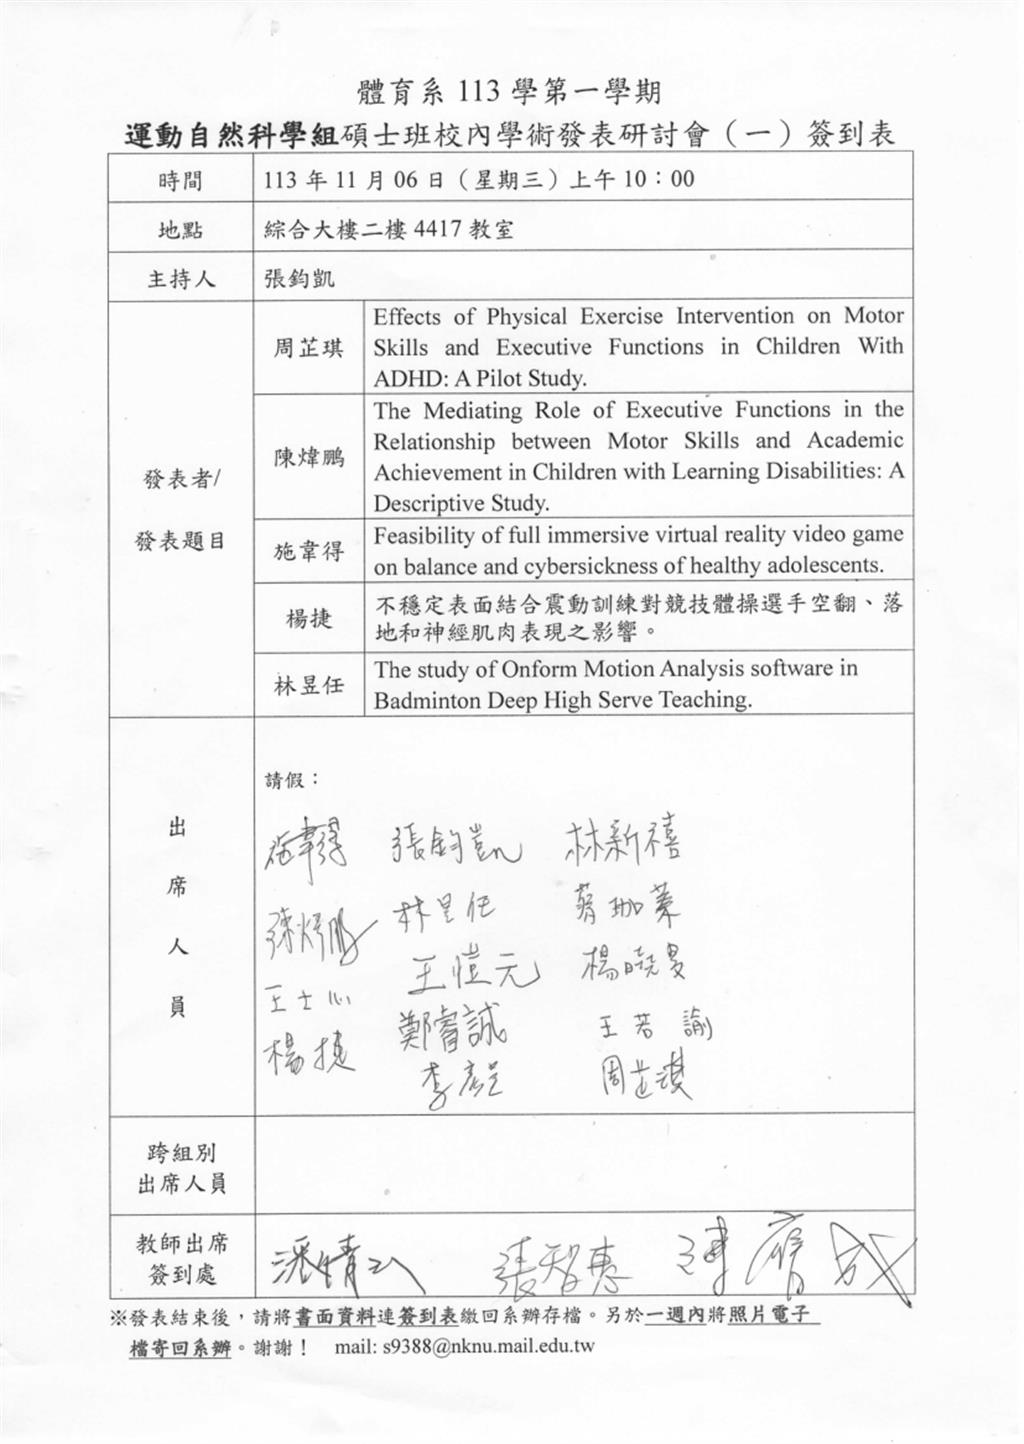 體育系 113 學第一學期
運動自然科學組碩士班校內學術發表研討會（一）簽到表
時間
113 年 11 月 06 日（星期三）上午 10：00
地點
綜合大樓二樓 4417 教室
主持人
張鈞凱
發表者/
發表題目
周芷琪
Effects of Physical Exercise Intervention on Motor
Skills and Executive Functions in Children With
ADHD: A Pilot Study.
陳煒鵬
The Mediating Role of Executive Functions in the
Relationship between Motor Skills and Academic
Achievement in Children with Learning Disabilities: A
Descriptive Study.
施韋得
Feasibility of full immersive virtual reality video game
on balance and cybersickness of healthy adolescents.
楊捷
不穩定表面結合震動訓練對競技體操選手空翻、落
地和神經肌肉表現之影響。
林昱任
The study of Onform Motion Analysis software in
Badminton Deep High Serve Teaching.
出
席
人
員
請假：
施韋得 張鈞凱 林新禧
陳煒鵬 林昱任
王愷元
王士心
鄭睿誠 王若諭
楊捷
李彥呈 周芷琪
跨組別
出席人員
教師出席
簽到處
張智惠
※發表結束後，請將書面資料連簽到表繳回系辦存檔。另於一週內將照片電子
檔寄回系辦。謝謝！ mail: s9388@nknu.mail.edu.tw